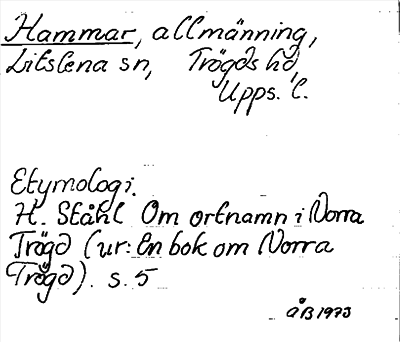 Hammar, allmänning,
Litslena sn, Trögds hd,
Upps. l.
Etymologi.
H. Ståhl Om ortnamn i Norra
Trögd (ur: En bok om Norra
Trögd). s. 5
ÅB 1973